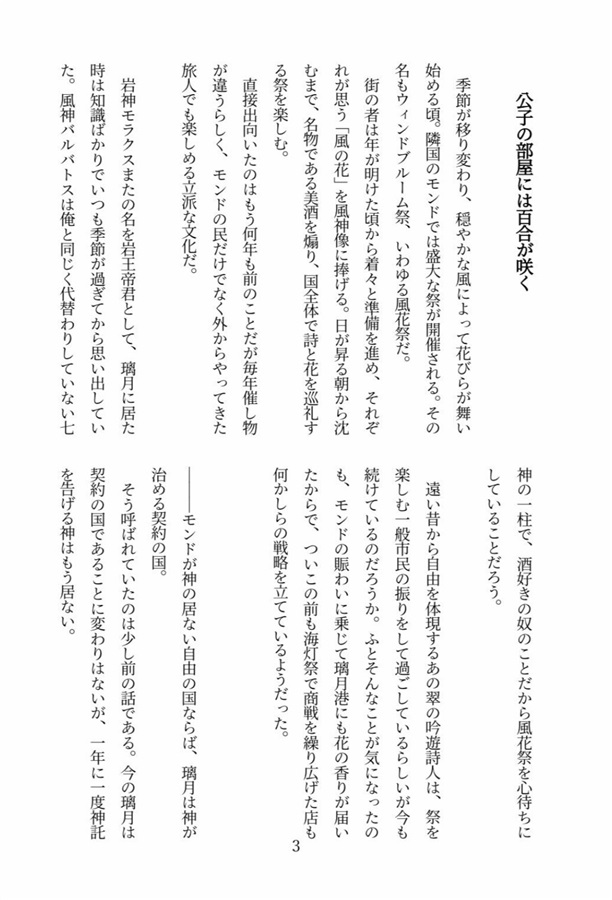 公子の部屋には百合が咲く
季節が移り変わり、穏やかな風によって花びらが舞い
始める頃。隣国のモンドでは盛大な祭が開催される。その
名もウィンドブルーム祭、いわゆる風花祭だ。
街の者は年が明けた頃から着々と準備を進め、それぞ
れが思う「風の花」を風神像に捧げる。日が昇る朝から沈
むまで、名物である美酒を煽り、国全体で詩と花を巡礼す
る祭を楽しむ。
直接出向いたのはもう何年も前のことだが毎年催し物
が違うらしく、モンドの民だけでなく外からやってきた
旅人でも楽しめる立派な文化だ。
岩神モラクスまたの名を岩王帝君として、璃月に居た
時は知識ばかりでいつも季節が過ぎてから思い出してい
た。風神バルバトスは俺と同じく代替わりしていない七
神の一柱で、酒好きの奴のことだから風花祭を心待ちに
していることだろう。
遠い昔から自由を体現するあの翠の吟遊詩人は、祭を
楽しむ一般市民の振りをして過ごしているらしいが今も
続けているのだろうか。ふとそんなことが気になったの
も、モンドの賑わいに乗じて璃月港にも花の香りが届い
たからで、ついこの前も海灯祭で商戦を繰り広げた店も
何かしらの戦略を立てているようだった。
―――モンドが神の居ない自由の国ならば、璃月は神が
治める契約の国。
そう呼ばれていたのは少し前の話である。今の璃月は
契約の国であることに変わりはないが、一年に一度神託
を告げる神はもう居ない。
3